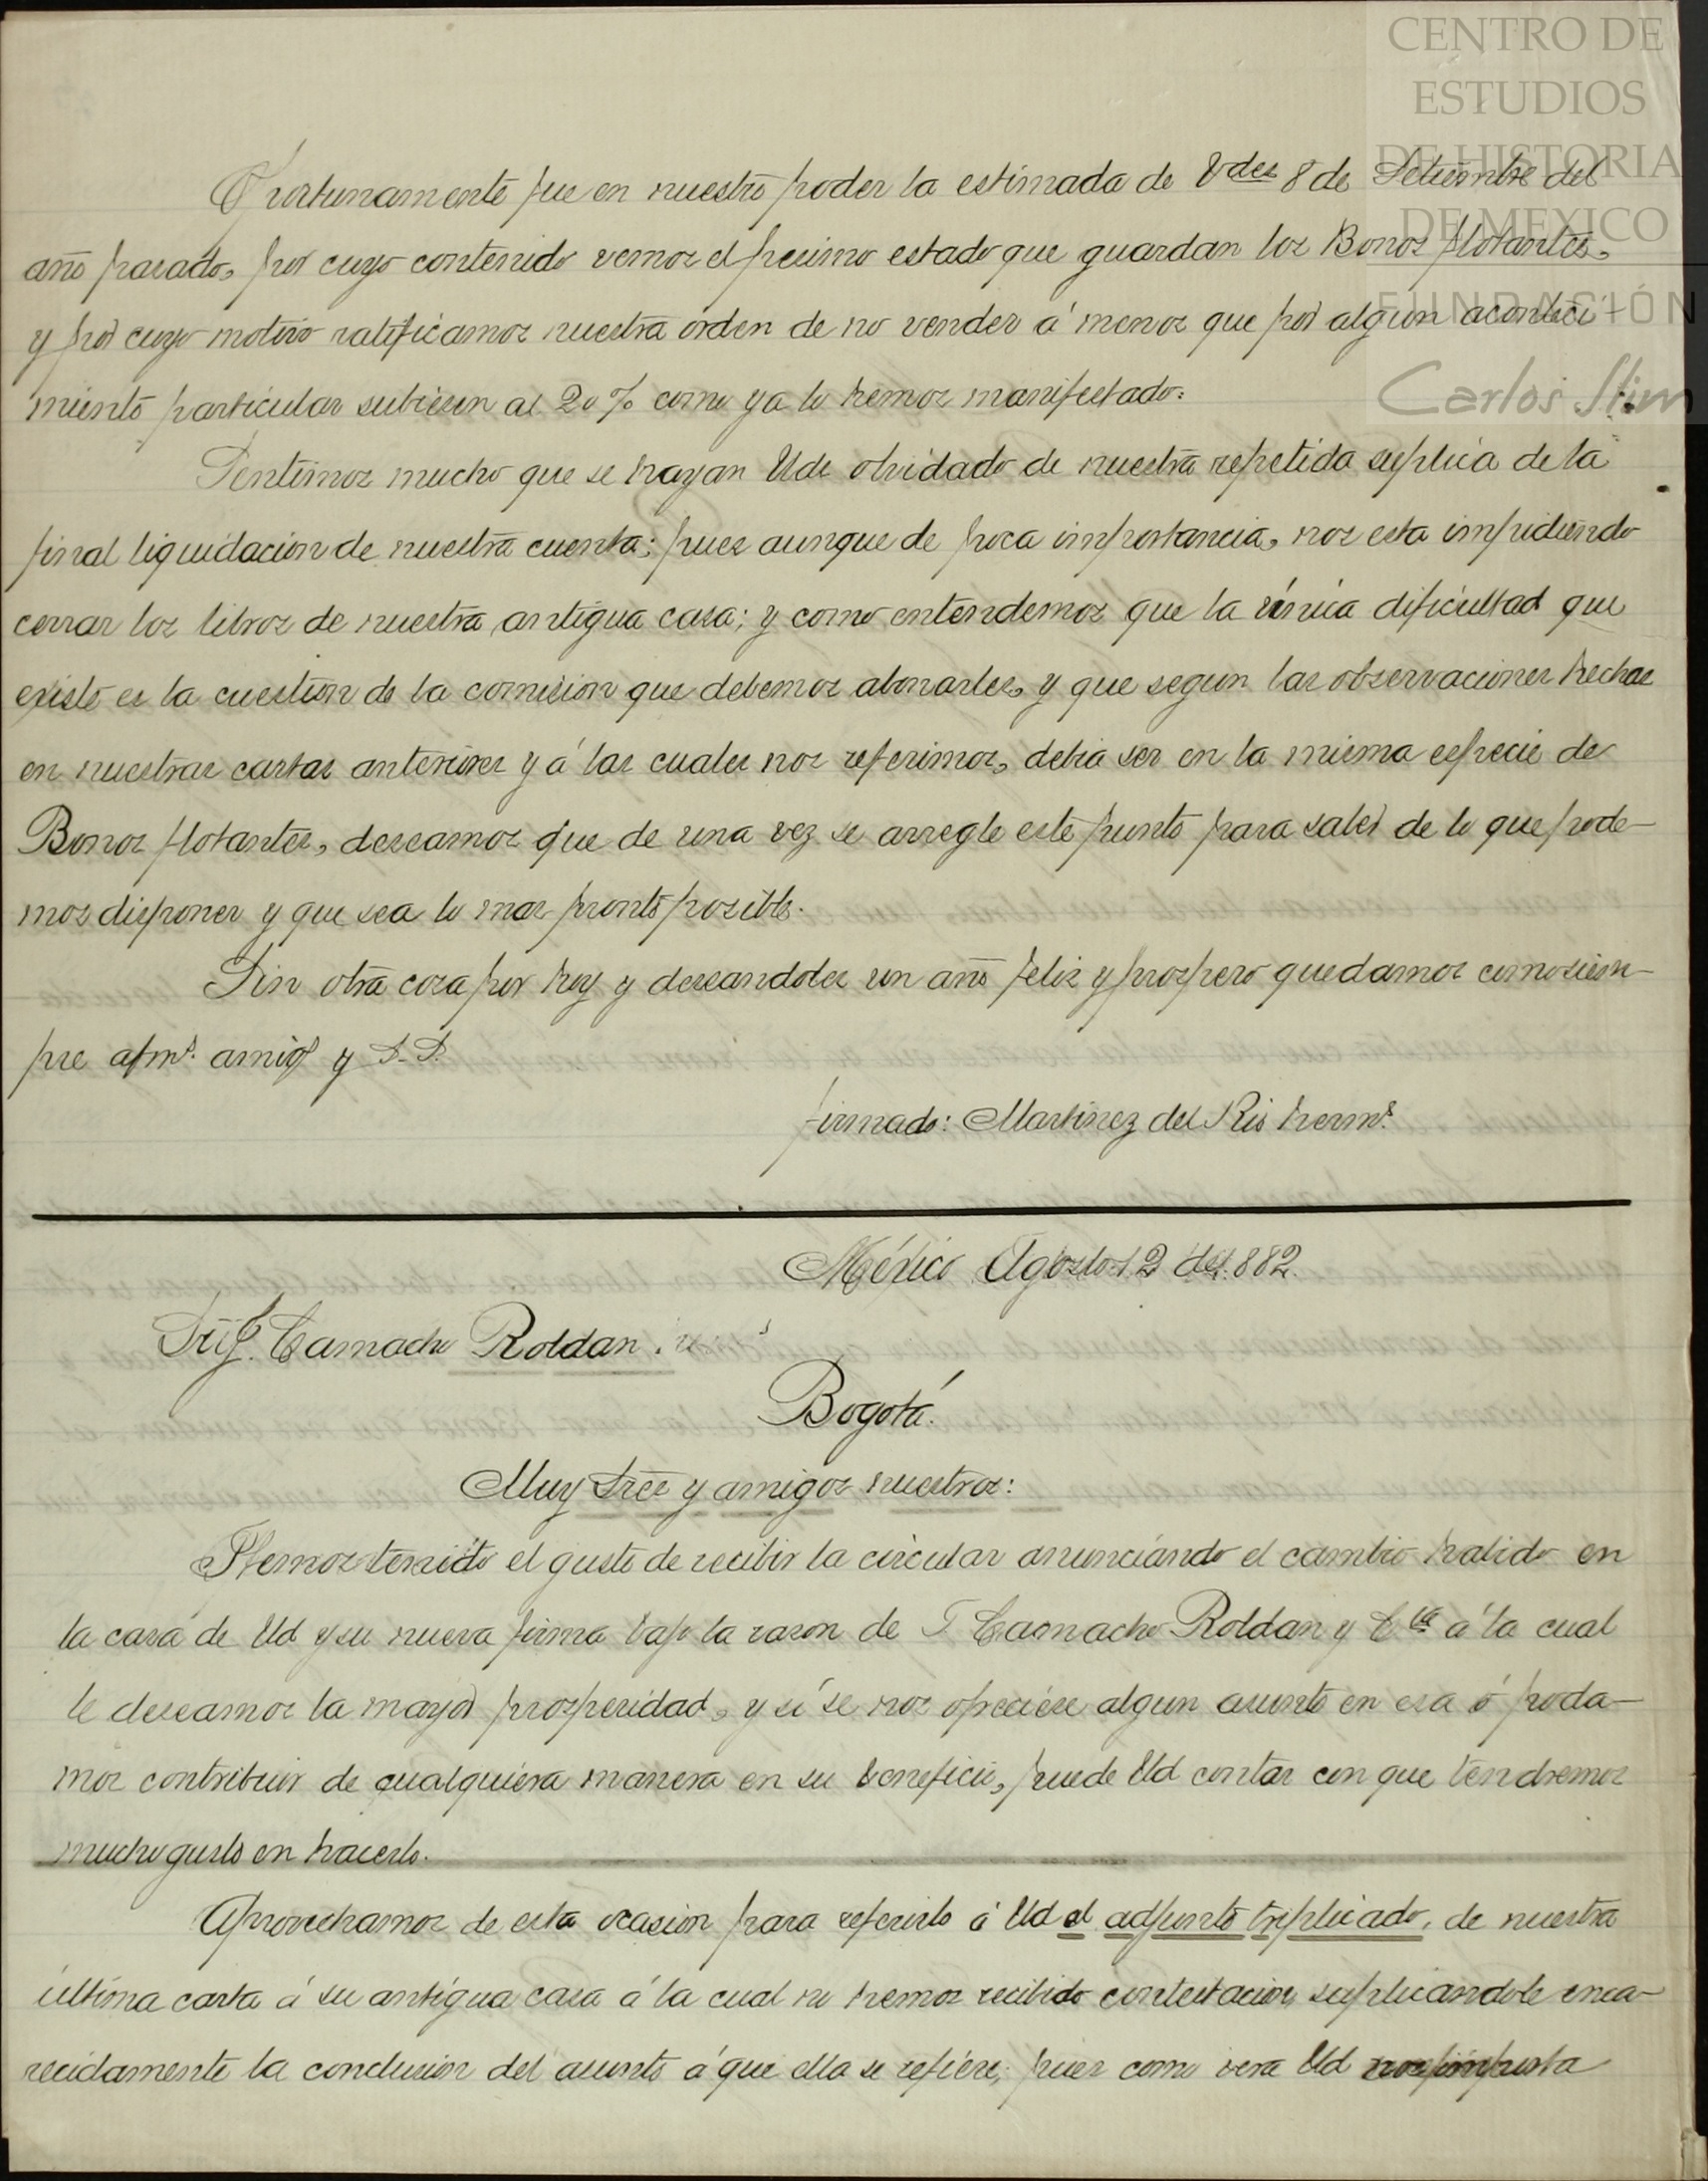 CENTRO DE
ESTUDIOS
DE HISTORIA
DE MEXICO
FUNDACIÓN
Carlos Slim
Oportunamente fue en nuestro poder la estimada de Vdes 8 de Setiembre del
año pasado, por cuyo contenido vemos el pesimo estado que guardan los Bonos flotantes,
y por cuyo motivo ratificamos nuestra orden de no vender á menos que por algun aconteci-
miento particular subiesen al 20% como ya lo hemos manifestado.
Sentimos mucho que se hayan Uds olvidado de nuestra repetida suplica de la
final liquidacion de nuestra cuenta; pues aunque de poca importancia, nos esta impidiendo
cerrar los libros de nuestra antigua casa; y como entendemos que la única dificultad que
existe es la cuestion de la comision que debemos abonarles, y que segun las observaciones hechas
en nuestras cartas anteriores y á las cuales nos referimos, debia ser en la misma especie de
Bonos flotantes, deseamos que de una vez se arregle este punto para saber de lo que pode-
mos disponer y que sea lo mas pronto posible.
Sin otra cosa por hoy y deseandoles un año feliz y prospero quedamos como siem-
pre afmˢ. amigˢ y S. S.
firmado: Martinez del Rio hermˢ.
México Agosto 12 de 1.882.
Sreˢ. Camacho Roldan
Bogotá.
Muy Sres y amigos nuestros:
Hemos tenido el gusto de recibir la circular anunciando el cambio habido en
la casa de Ud y su nueva firma bajo la razon de Camacho Roldan y Cía á la cual
le deseamos la mayor prosperidad, y si se nos ofreciere algun asunto en esa ó poda-
mos contribuir de qualquiera manera en su beneficio, puede Ud contar con que tendremos
mucho gusto en hacerlo.
Aprovechamos de esta ocasion para referirlo á Ud al adjunto triplicado, de nuestra
última carta á su antigua casa á la cual no hemos recibido contestacion, suplicandole enca-
recidamente la conclusion del asunto á que ella se refiere, pues como vera Ud nos importa